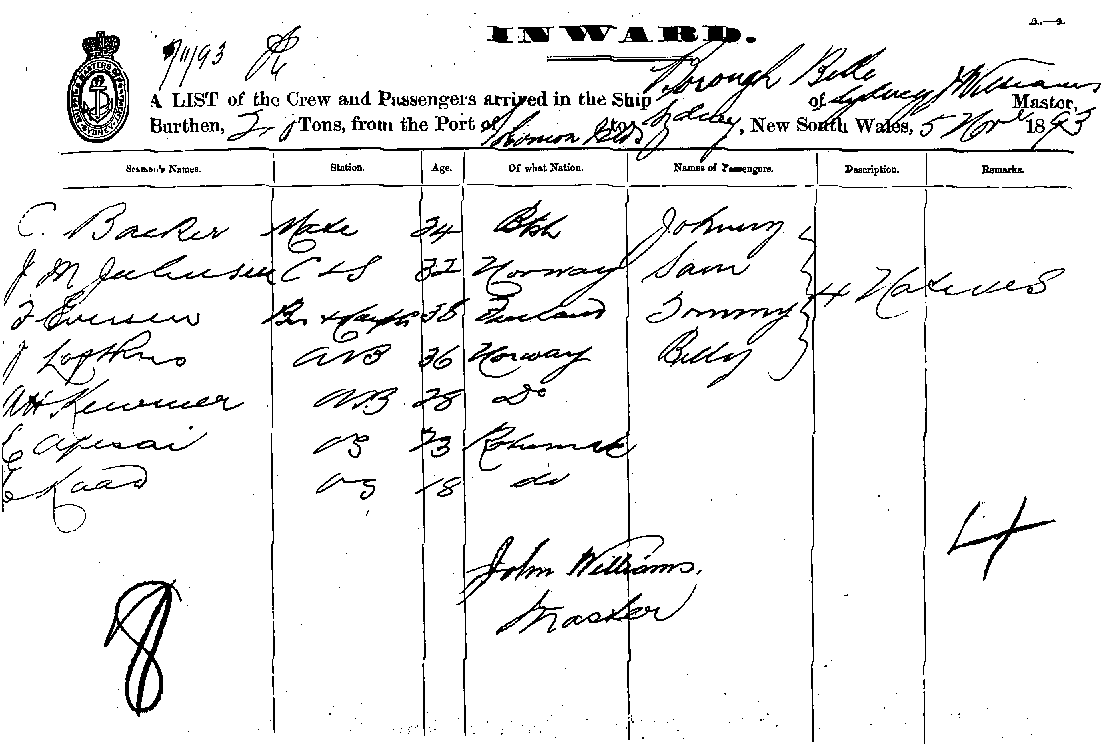 INWARD.
7/11/93
A LIST of the Crew and Passengers arrived in the Ship Borough Belle of Sydney J Williams Master,
Burthen, Tons, from the Port of Solomon Ids to Sydney, New South Wales, 5 Novr 1893
Seamen's Names. Station. Age. Of what Nation. Names of Passengers. Description. Remarks.
C. Backer Mate 34 Btsh Johnny
J M Juliussen C & S 32 Norway Sam
4 Natives
F Eversen 38 Tommy
J AB 36 Norway Billy
AH AB 28 Do
E Apisai OS 23
E Kaad OS 18 do
4
John Williams.
Master
8